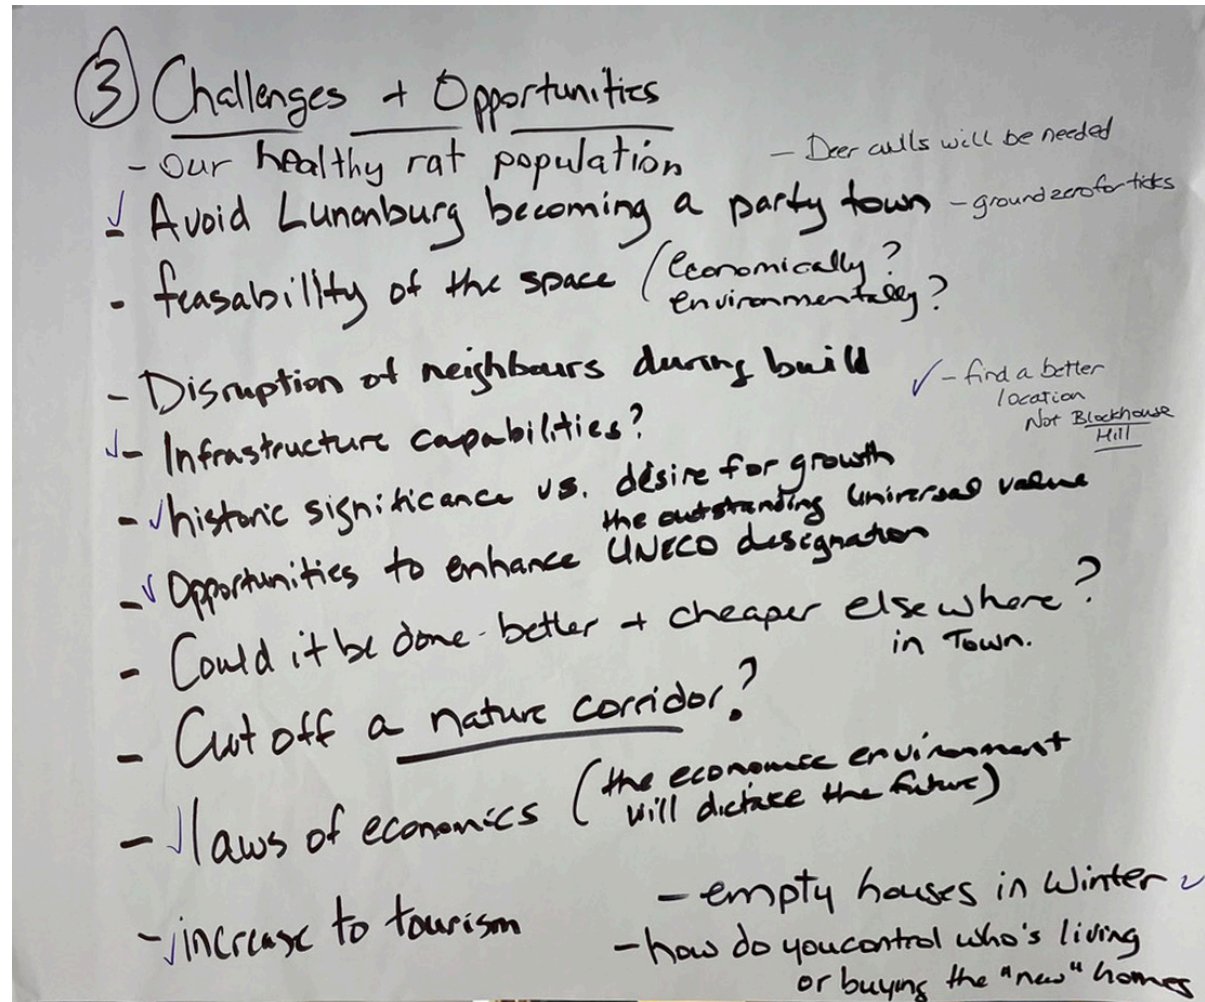 ③ Challenges + Opportunities
- our healthy rat population
- Deer culls will be needed
- Avoid Lunenburg becoming a party town
- ground zero for ticks
- feasability of the space (economically?
environmentally?
- Disruption of neighbours during build
- find a better
location
Not Blockhouse
Hill
- Infrastructure capabilities?
- historic significance vs. desire for growth
the outstanding universal value
- Opportunities to enhance UNECO designation
- Could it be done better + cheaper elsewhere?
in Town.
- Cut off a nature corridor?
- laws of economics (the economic environment
will dictate the future)
- increase to tourism
- empty houses in Winter
- how do you control who's living
or buying the "new" homes